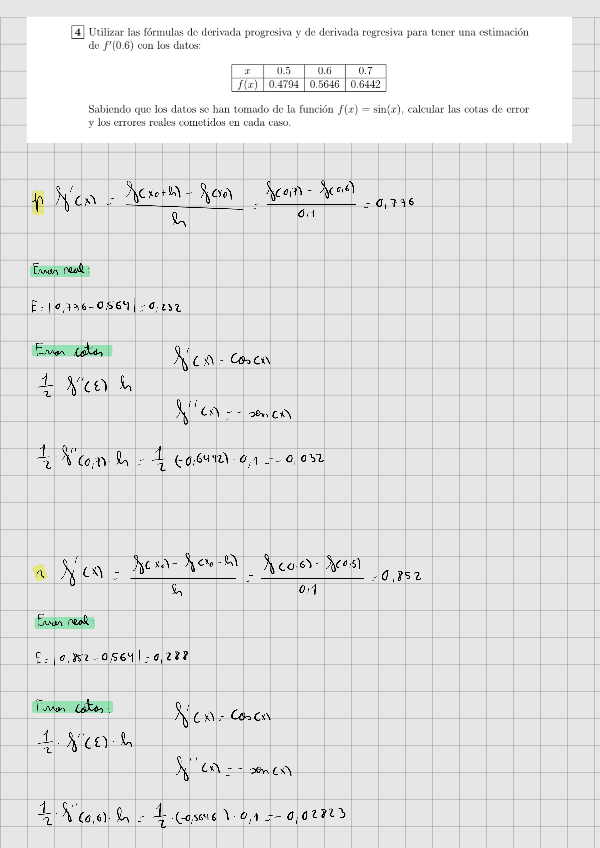 4 Utilizar las fórmulas de derivada progresiva y de derivada regresiva para tener una estimación
de f′(0.6) con los datos:
x 0.5 0.6 0.7
f(x) 0.4794 0.5646 0.6442
Sabiendo que los datos se han tomado de la función f(x) = sin(x), calcular las cotas de error
y los errores reales cometidos en cada caso.
p f'(x) = (f(x0+h) - f(x0))/h = (f(0,7) - f(0,6))/0.1 = 0,796
Error real:
E = |0,796 - 0,564| = 0,232
Error cotas f'(x) = cos(x)
1/2 f''(ε) h
f''(x) = - sen(x)
1/2 f''(0,7) · h = 1/2 (-0,6442) · 0,1 = - 0,032
r f'(x) = (f(x0) - f(x0 - h))/h = (f(0.6) - f(0.5))/0.1 = 0,852
Error real:
E = |0,852 - 0,564| = 0,288
Error cotas: f'(x) = cos(x)
1/2 · f''(ε) · h
f''(x) = - sen(x)
1/2 · f''(0,6) · h = 1/2 · (-0,5646) · 0,1 = - 0,02823